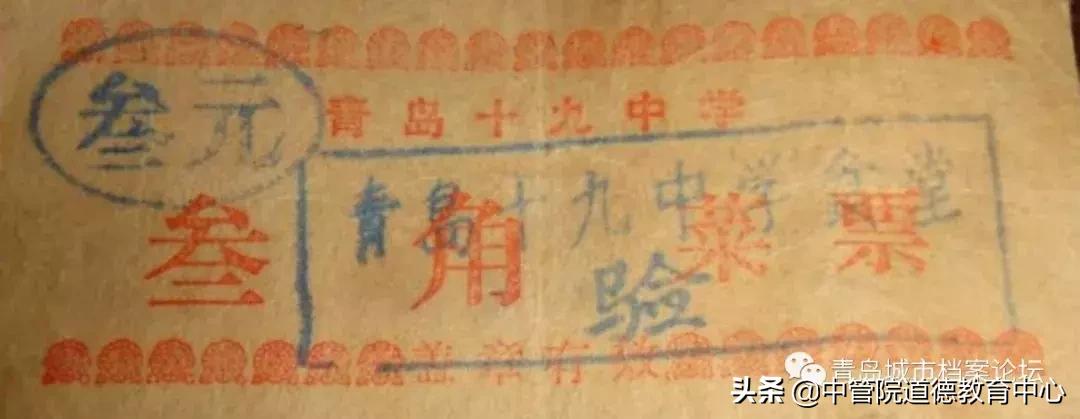 叁元
青岛十九中学
青岛十九中学食堂
叁角菜票
验
盖章有效
青岛城市档案论坛
头条@中管院道德教育中心